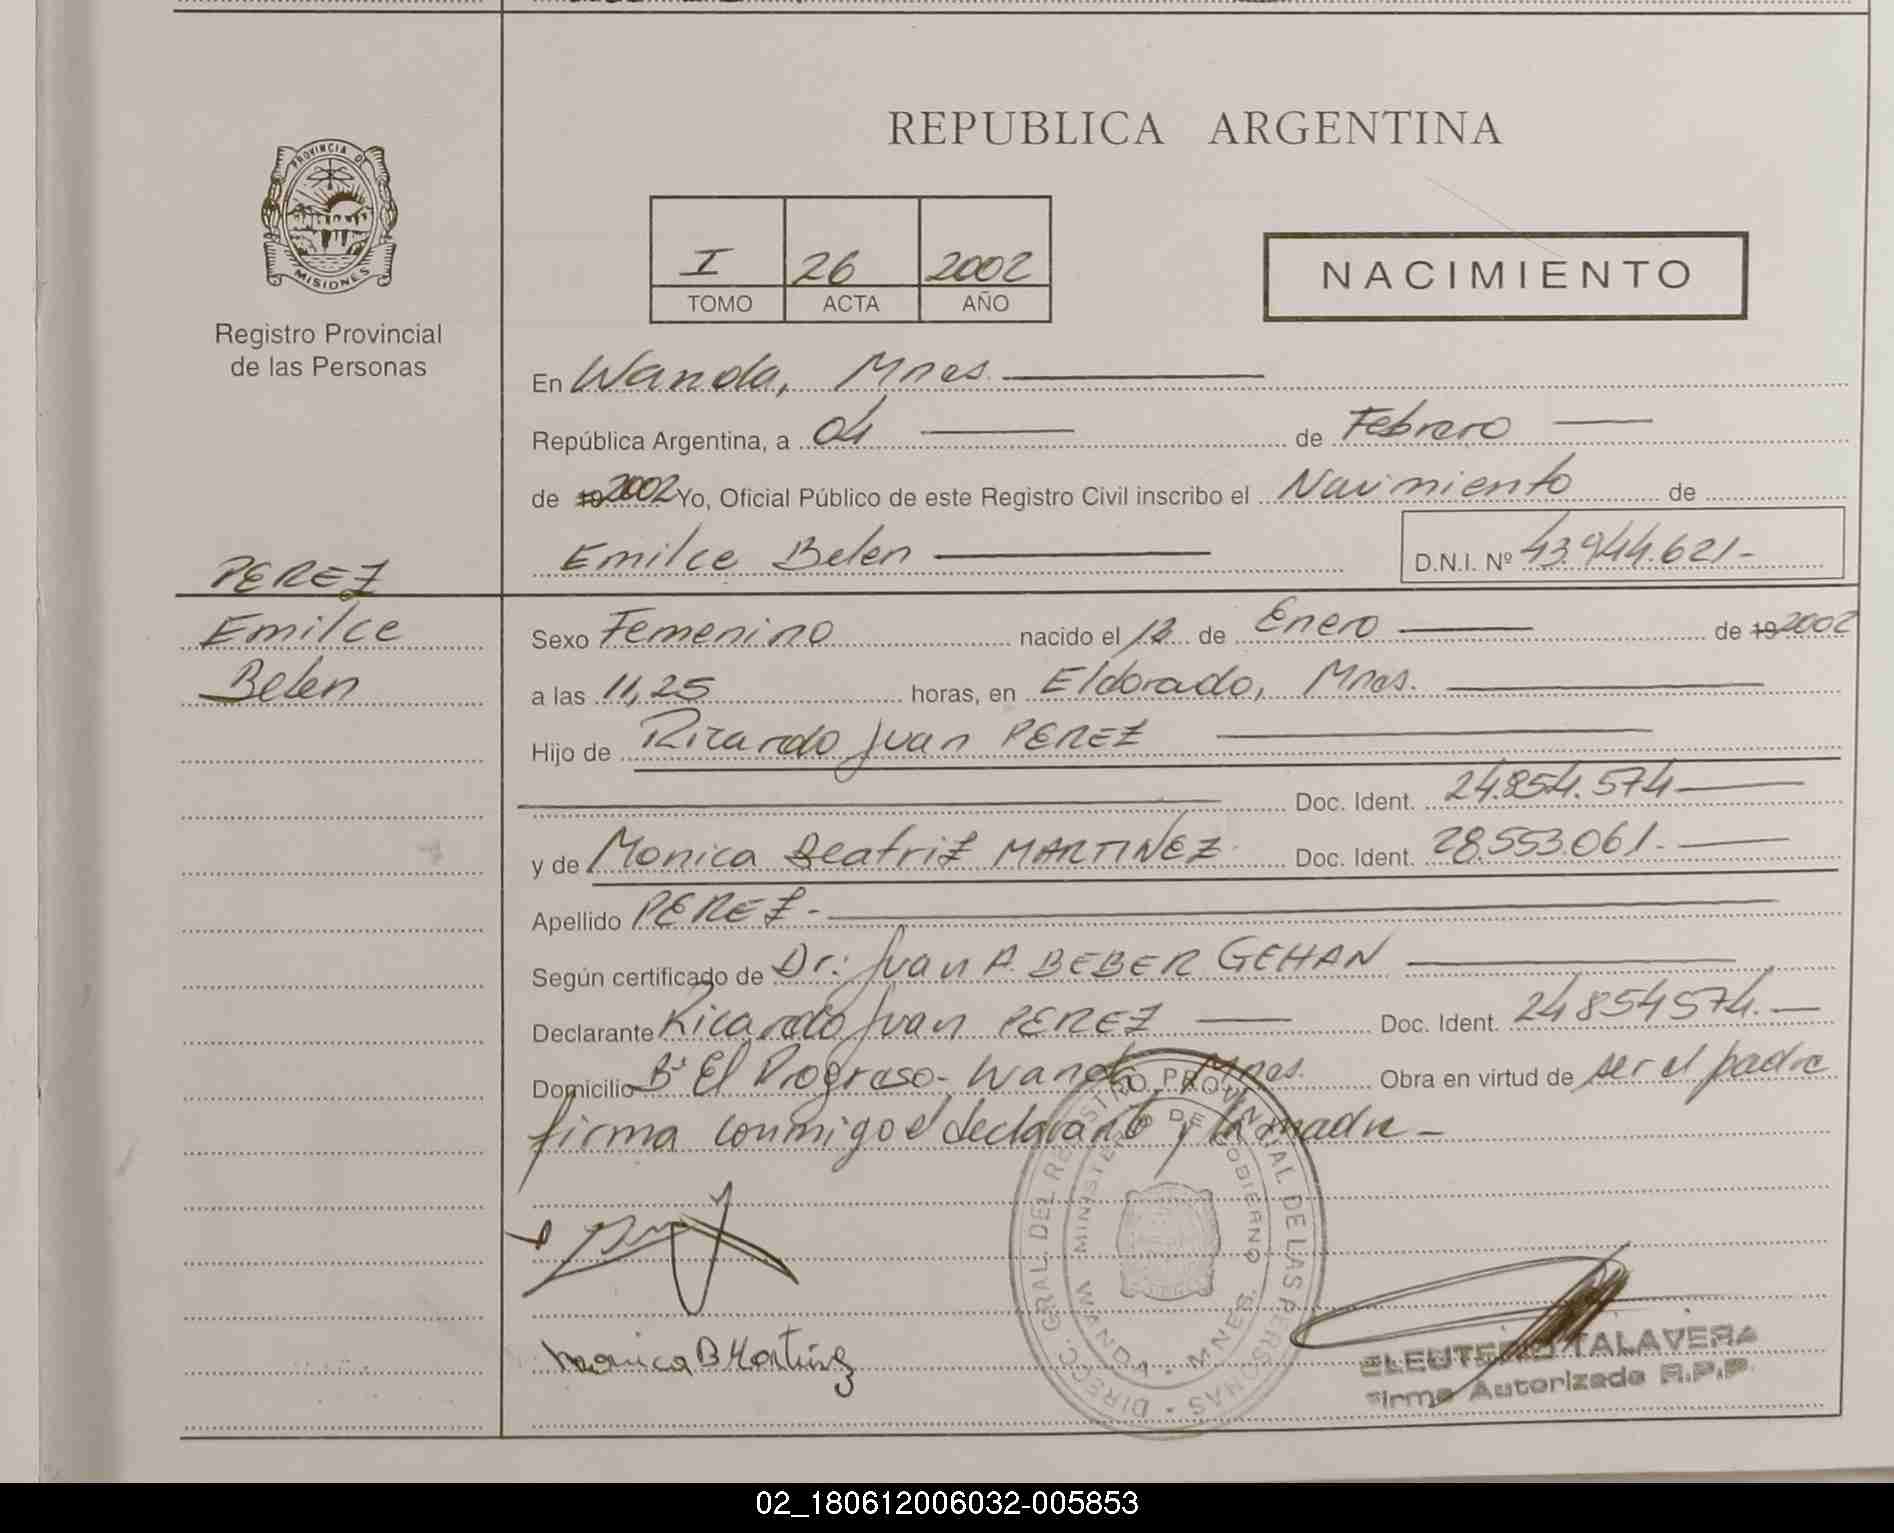 PROVINCIA DE
MISIONES
Registro Provincial
de las Personas
PEREZ
Emilce
Belen
REPUBLICA ARGENTINA
I 26 2002
TOMO ACTA AÑO
NACIMIENTO
En Wanda, Mnes.
República Argentina, a 04 de Febrero
de 19 2002 Yo, Oficial Público de este Registro Civil inscribo el Nacimiento de
Emilce Belen D.N.I. Nº 43.944.621-
Sexo Femenino nacido el de Enero de 19 2002
a las 11,25 horas, en Eldorado, Mnes.
Hijo de Ricardo Juan PEREZ
Doc. Ident. 24.854.574
y de Monica Beatriz MARTINEZ Doc. Ident. 28.553.061.
Apellido PEREZ-
Según certificado de Dr: Juan A. BEBER GEHAN
Declarante Ricardo Juan PEREZ Doc. Ident. 24854574.
Domicilio Bº El Progreso- Wanda, Mnes. Obra en virtud de ser el padre
firma conmigo el declarante y la madre-
Monica B Martinez
DIRECC. GRAL. DEL REGISTRO PROVINCIAL DE LAS PERSONAS
MINISTERIO DE GOBIERNO
WANDA - MNES.
ELEUTERIO TALAVERA
Firma Autorizada R.P.P.
02_180612006032-005853